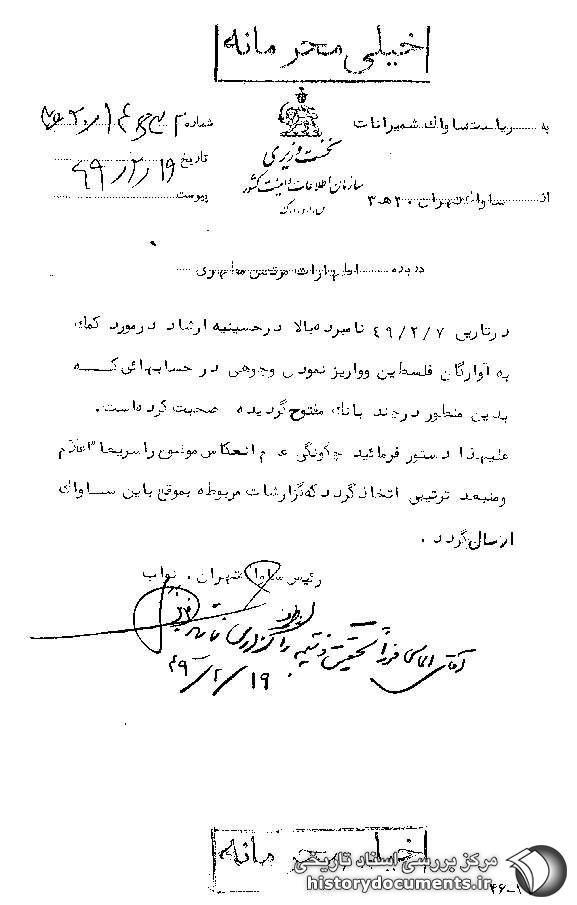 خیلی محرمانه
به ریاست ساواک شمیرانات
شماره
نخست وزیری
تاریخ ۴۹/۲/۱۹
سازمان اطلاعات و امنیت کشور
س.ا.و.ا.ک
پیوست
از ساواک تهران ۲۰ هـ ۳
درباره اظهارات مرتضی مطهری
در تاریخ ۴۹/۲/۷ نامبرده بالا در حسینیه ارشاد در مورد کمک
به آوارگان فلسطین و واریز نمودن وجوهی در حسابهائی که
بدین منظور در چند بانک مفتوح گردیده صحبت کرده است.
علیهذا دستور فرمائید چگونگی عدم انعکاس موضوع را سریعا" اعلام
و منبعد ترتیبی اتخاذ گردد که گزارشات مربوطه بموقع باین ساواک
ارسال گردد.
رئیس ساواک تهران. نواب
آقای الماسی فوراً تحقیق و نتیجه را گزارش
۴۹/۲/۱۹
خیلی محرمانه
مرکز بررسی اسناد تاریخی
historydocuments.ir